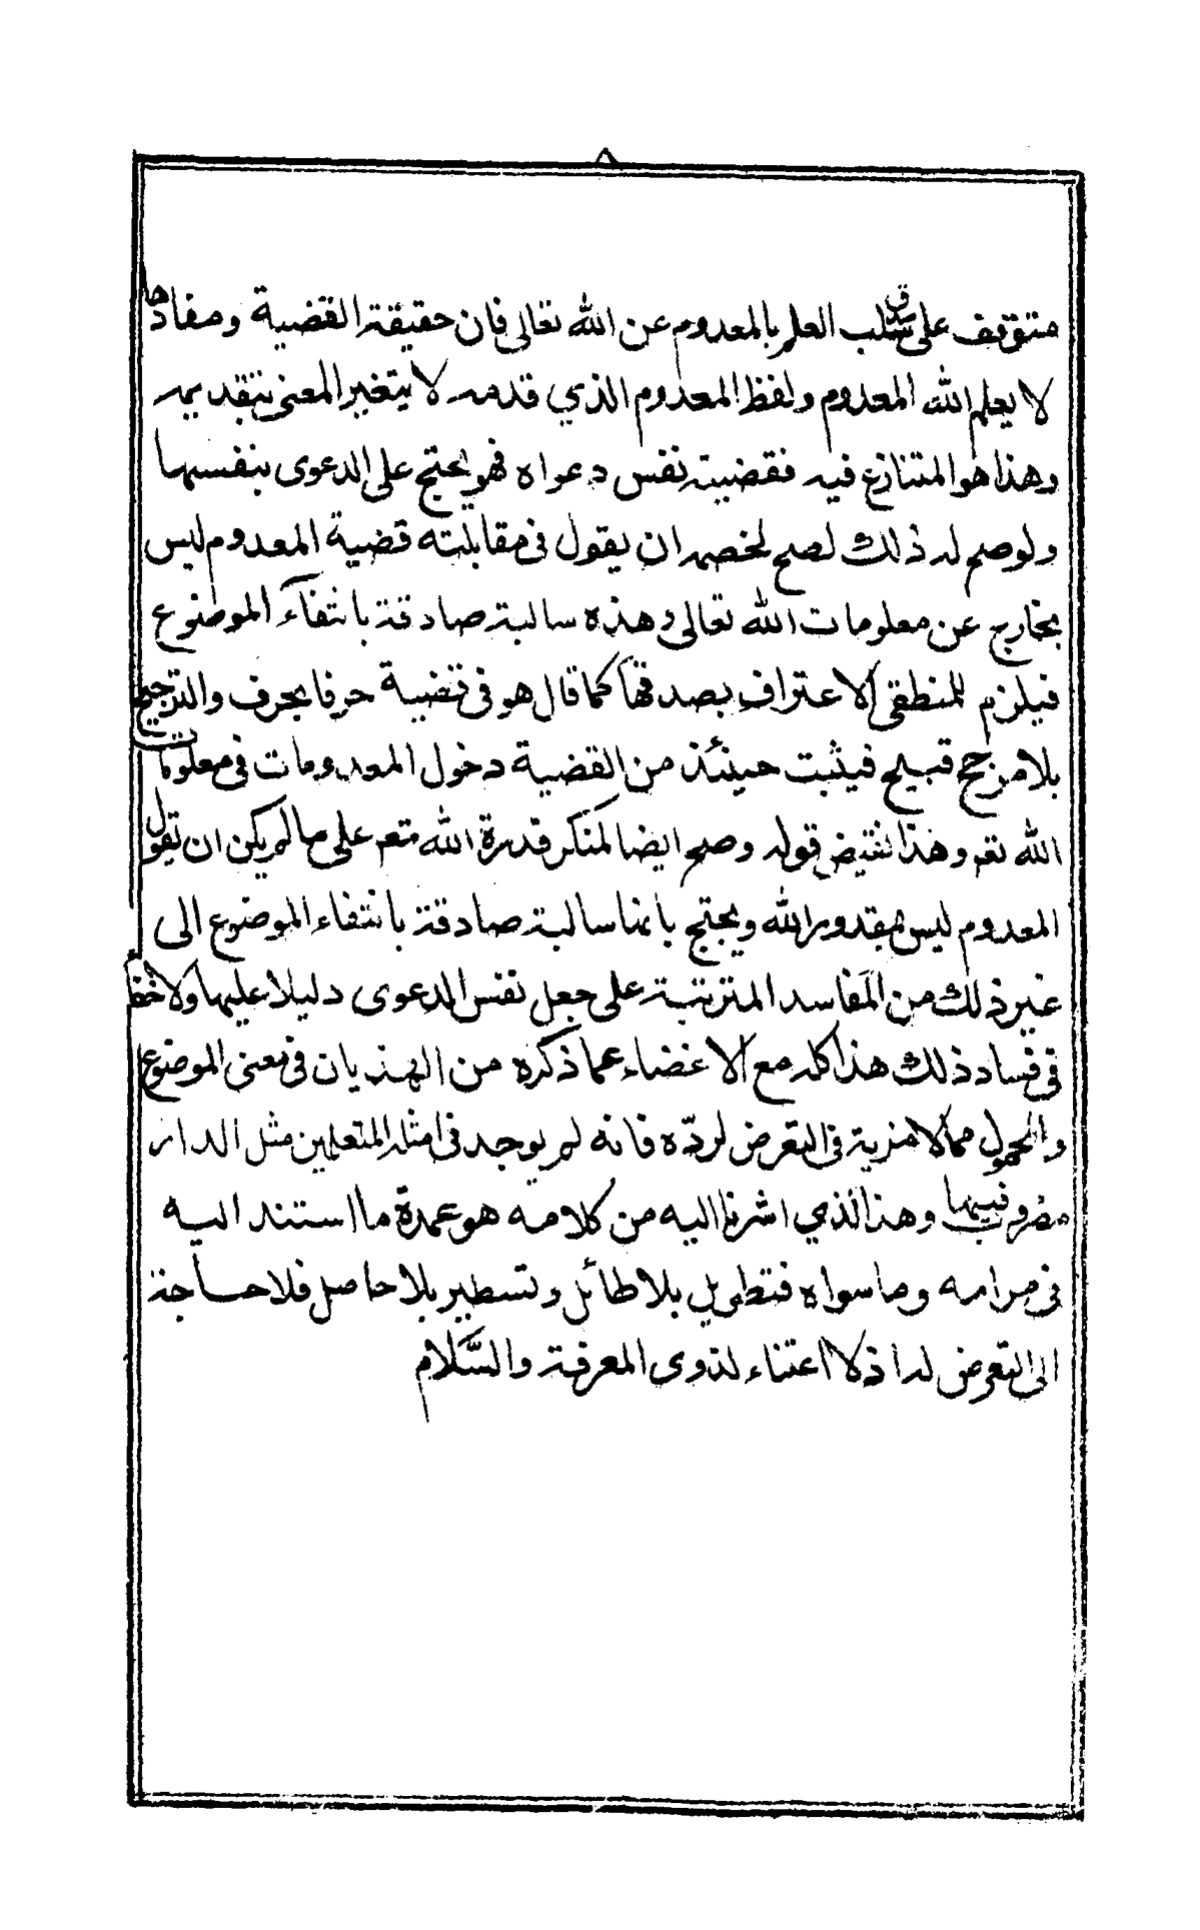 ٨
متوقف على صدق سلب العلم بالمعدوم عن الله تعالى فان حقيقة القضية ومفادها
لا يعلم الله المعدوم ولفظ المعدوم الذي قدمه لا يتغير المعنى بتقديمه
وهذا هو المتنازع فيه فقضيته نفس دعواه فهو يحتج على الدعوى بنفسها
ولو صح له ذلك لصح لخصمه ان يقول في مقابلته قضية المعدوم ليس
بخارج عن معلومات الله تعالى وهذه سالبة صادقة بانتفآء الموضوع
فيلزم المنطقى الاعتراف بصدقها كما قال هو في قضية حرفا بحرف والترجيح
بلا مرجح قبيح فيثبت حينئذ من القضية دخول المعدومات في معلومات
الله تعم وهذا نقيض قوله وصح ايضا لمنكر قدرة الله متعم على ما لم يكن ان يقول
المعدوم ليس بمقدور الله ويحتج بانها سالبة صادقة بانتفاء الموضوع الى
غير ذلك من المفاسد المترتبة على جعل نفس الدعوى دليلا عليها ولا خفآ
في فساد ذلك هذا كله مع الاغضاء عما ذكره من الهذيان في معنى الموضوع
والمحمول مما لا مزية في التعرض لردّه فانه لم يوجد في امثلة المتعلمين مثل الدار
مضروب فيها وهذا الذي اشرنا اليه من كلامه هو عمدة ما استند اليه
في مرامه وما سواه فتطويل بلا طائل وتسطير بلا حاصل فلا حاجة
الى التعرض له اذ لا اعتناء لذوى المعرفة والسَّلام